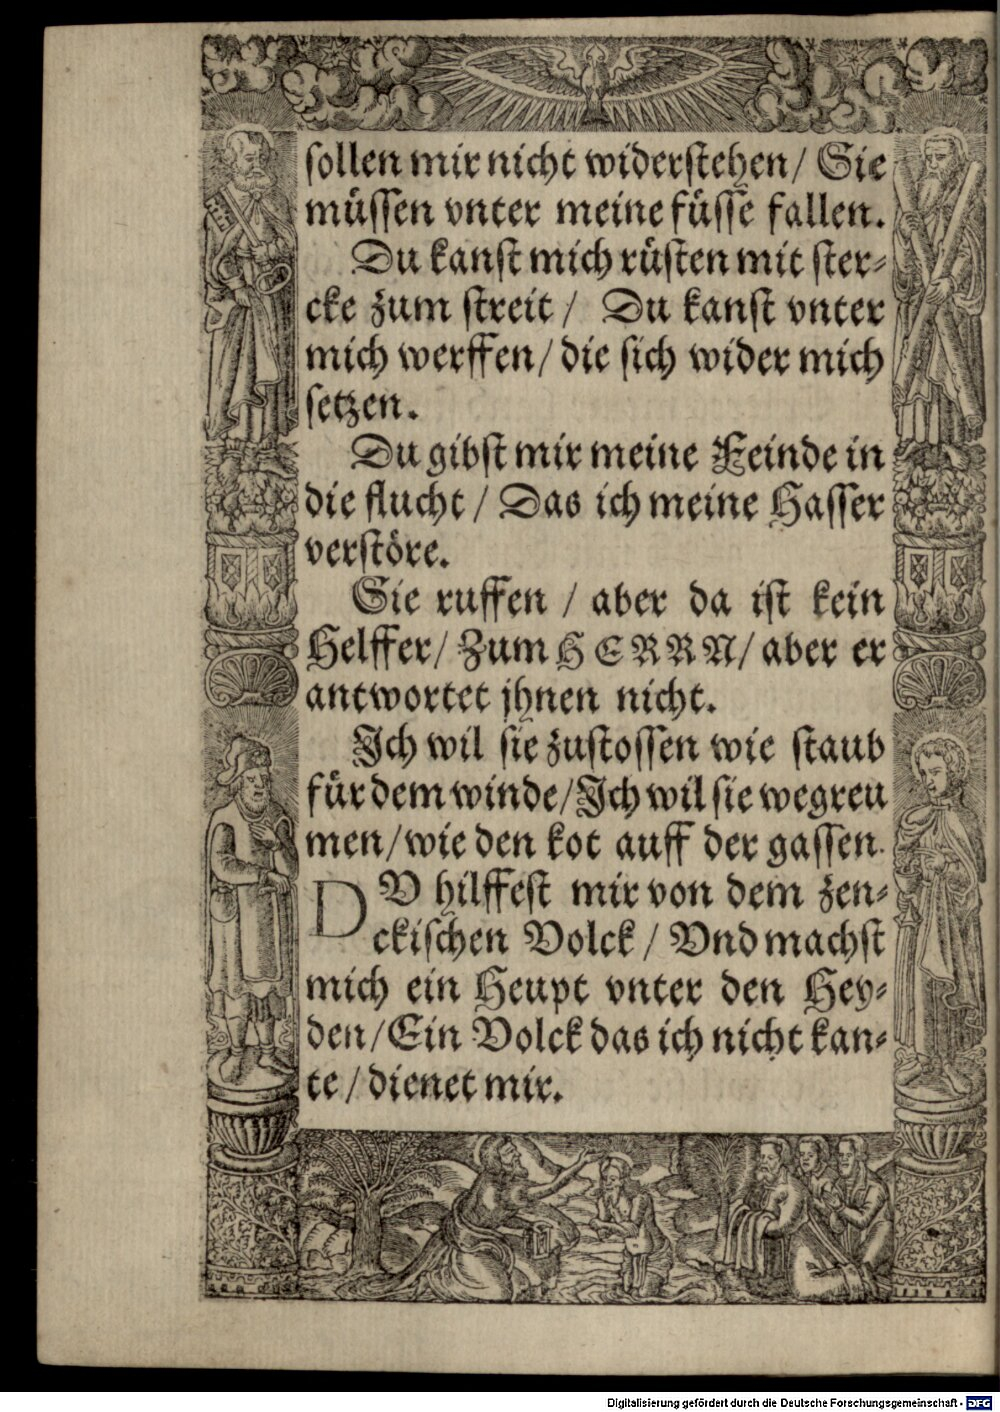 sollen mir nicht widerstehen/ Sie
müssen vnter meine füsse fallen.
Du kanst mich rüsten mit ster-
cke zum streit / Du kanst vnter
mich werffen/ die sich wider mich
setzen.
Du gibst mir meine Feinde in
die flucht / Das ich meine Hasser
verstöre.
Sie ruffen / aber da ist kein
Helffer/ Zum HERRN/ aber er
antwortet jhnen nicht.
Ich wil sie zustossen wie staub
für dem winde/ Ich wil sie wegreu
men/ wie den kot auff der gassen.
DV hilffest mir von dem zen-
ckischen Volck / Vnd machst
mich ein Heupt vnter den Hey-
den/ Ein Volck das ich nicht kan-
te / dienet mir.
Digitalisierung gefördert durch die Deutsche Forschungsgemeinschaft - DFG